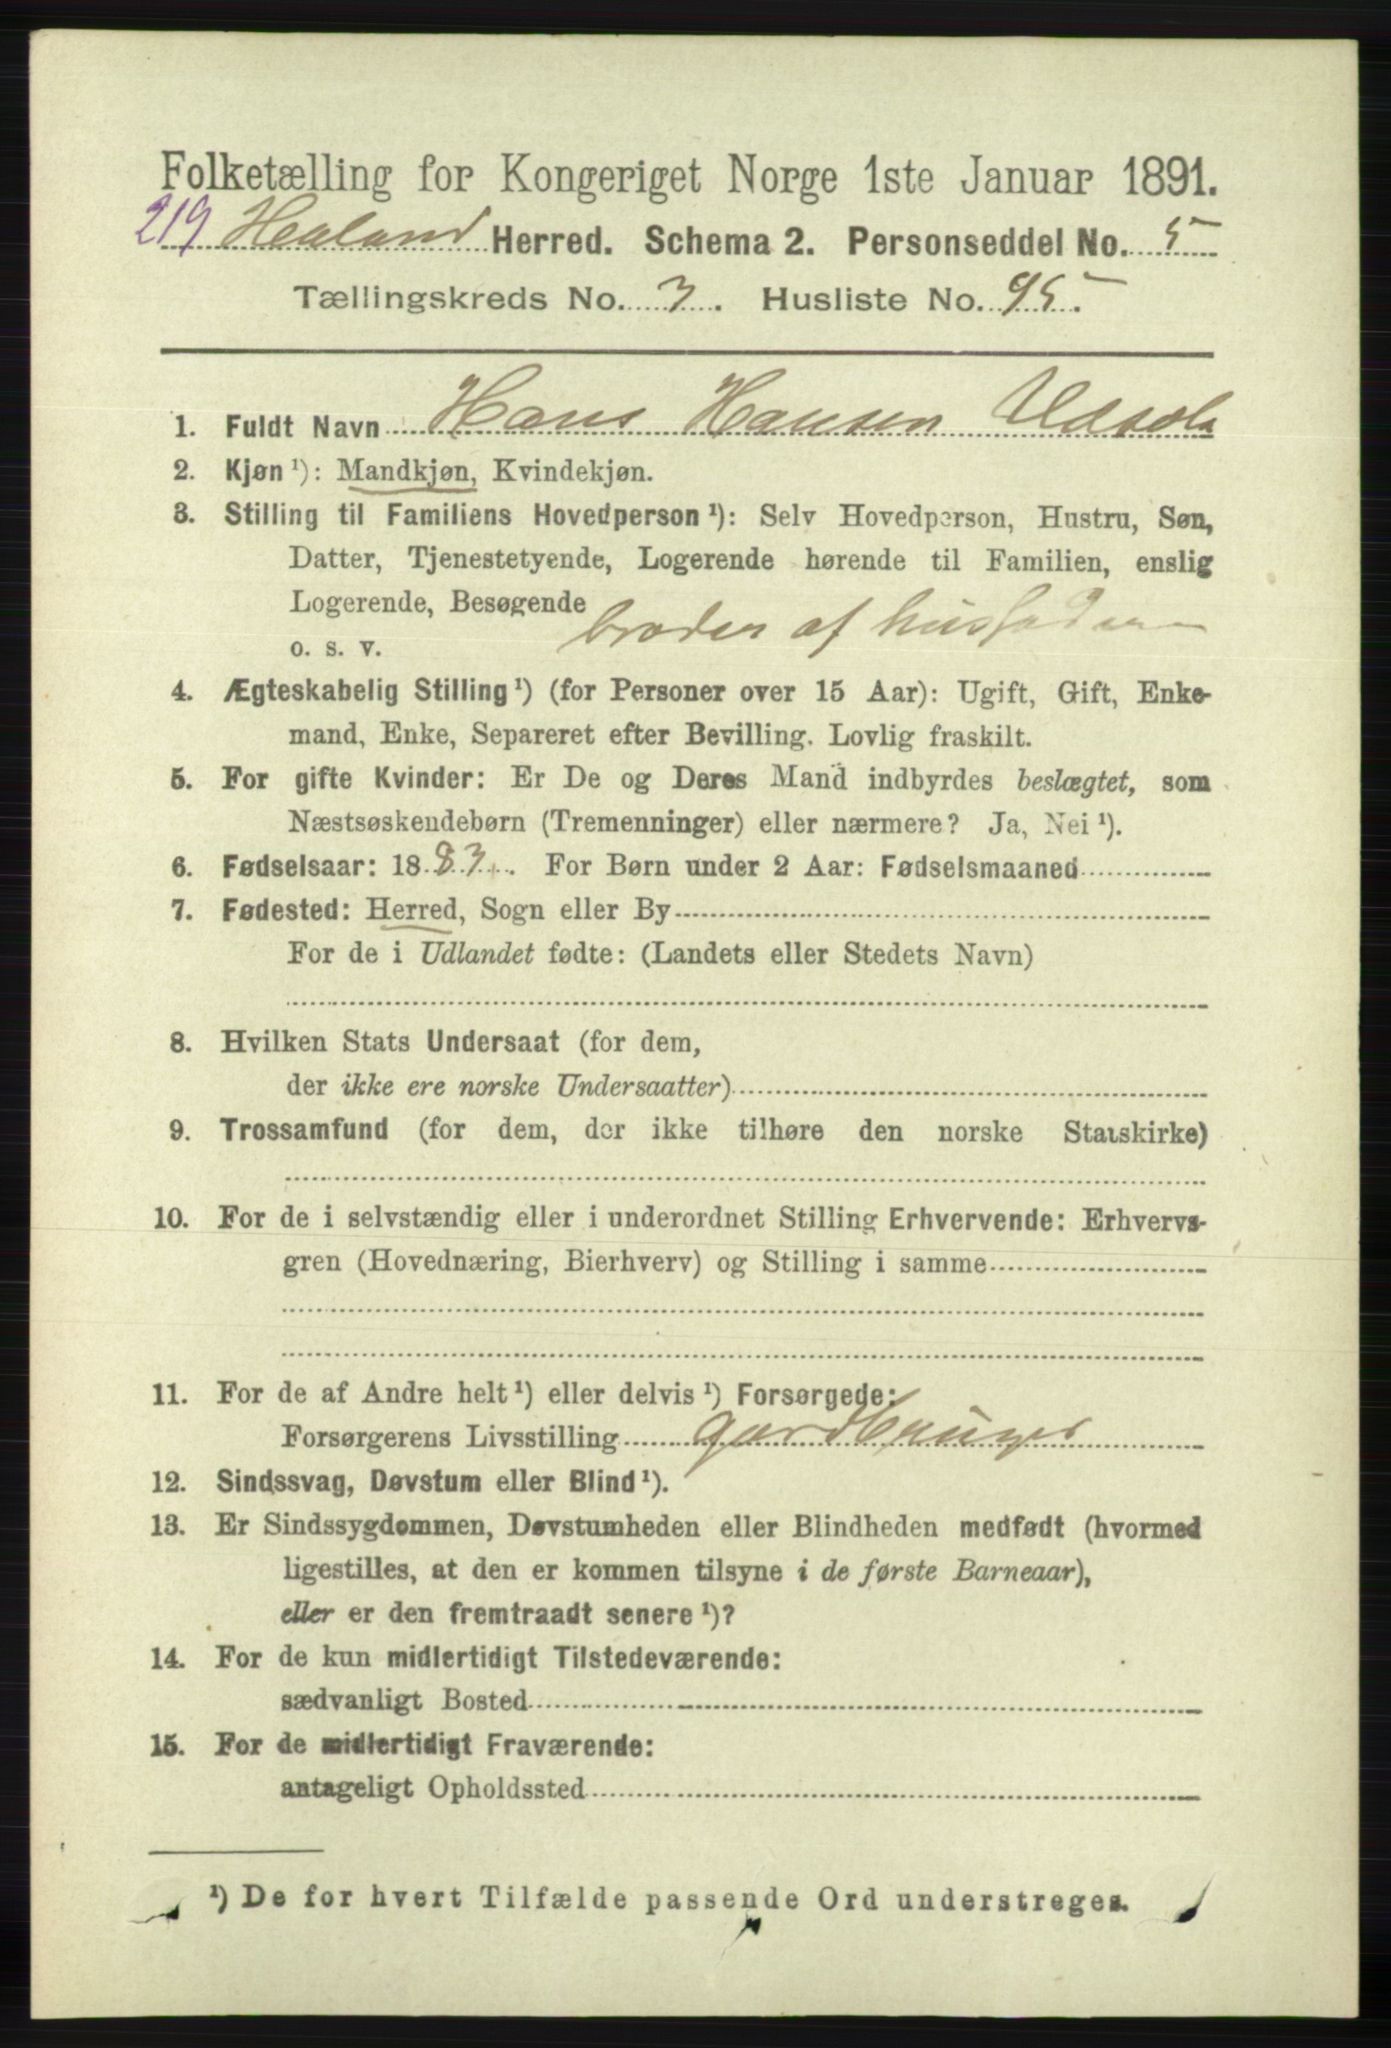 Folketælling for Kongeriget Norge 1ste Januar 1891.
219 Hetland Herred. Schema 2. Personseddel No. 5
Tællingskreds No. 3. Husliste No. 95.
1. Fuldt Navn Hans Hansen
2. Kjøn ¹): Mandkjøn, Kvindekjøn.
3. Stilling til Familiens Hovedperson ¹): Selv Hovedperson, Hustru, Søn,
Datter, Tjenestetyende, Logerende hørende til Familien, enslig
Logerende, Besøgende
o. s. v. broder af husfaderen
4. Ægteskabelig Stilling ¹) (for Personer over 15 Aar): Ugift, Gift, Enke-
mand, Enke, Separeret efter Bevilling. Lovlig fraskilt.
5. For gifte Kvinder: Er De og Deres Mand indbyrdes beslægtet, som
Næstsøskendebørn (Tremenninger) eller nærmere? Ja, Nei ¹).
6. Fødselsaar: 1883. For Børn under 2 Aar: Fødselsmaaned
7. Fødested: Herred, Sogn eller By
For de i Udlandet fødte: (Landets eller Stedets Navn)
8. Hvilken Stats Undersaat (for dem,
der ikke ere norske Undersaatter)
9. Trossamfund (for dem, der ikke tilhøre den norske Statskirke)
10. For de i selvstændig eller i underordnet Stilling Erhvervende: Erhvervs-
gren (Hovednæring, Bierhverv) og Stilling i samme
11. For de af Andre helt ¹) eller delvis ¹) Forsørgede:
Forsørgerens Livsstilling gardbruger
12. Sindssvag, Døvstum eller Blind ¹).
13. Er Sindssygdommen, Døvstumheden eller Blindheden medfødt (hvormed
ligestilles, at den er kommen tilsyne i de første Barneaar),
eller er den fremtraadt senere ¹)?
14. For de kun midlertidigt Tilstedeværende:
sædvanligt Bosted
15. For de midlertidigt Fraværende:
antageligt Opholdssted
¹) De for hvert Tilfælde passende Ord understreges.